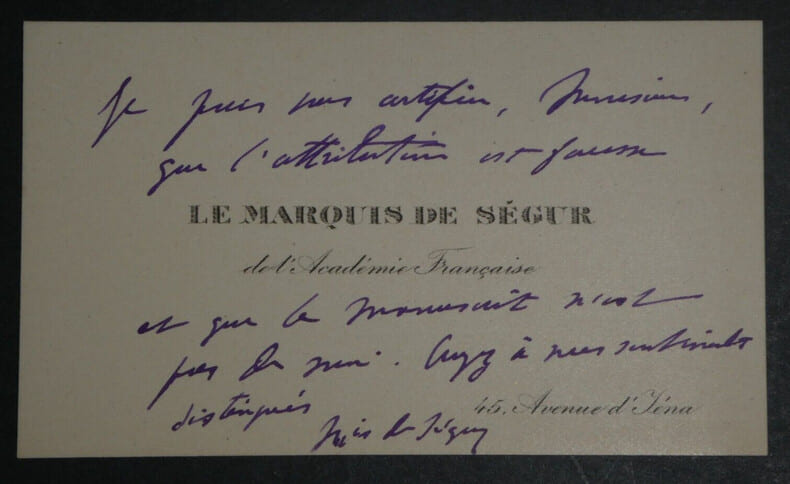 Je puis vous certifier, Monsieur,
que l'attribution est fausse
LE MARQUIS DE SÉGUR
de l'Académie Française
et que le manuscrit n'est
pas de moi. Croyez à mes sentiments
distingués
45, Avenue d'Iéna
Mis de Ségur